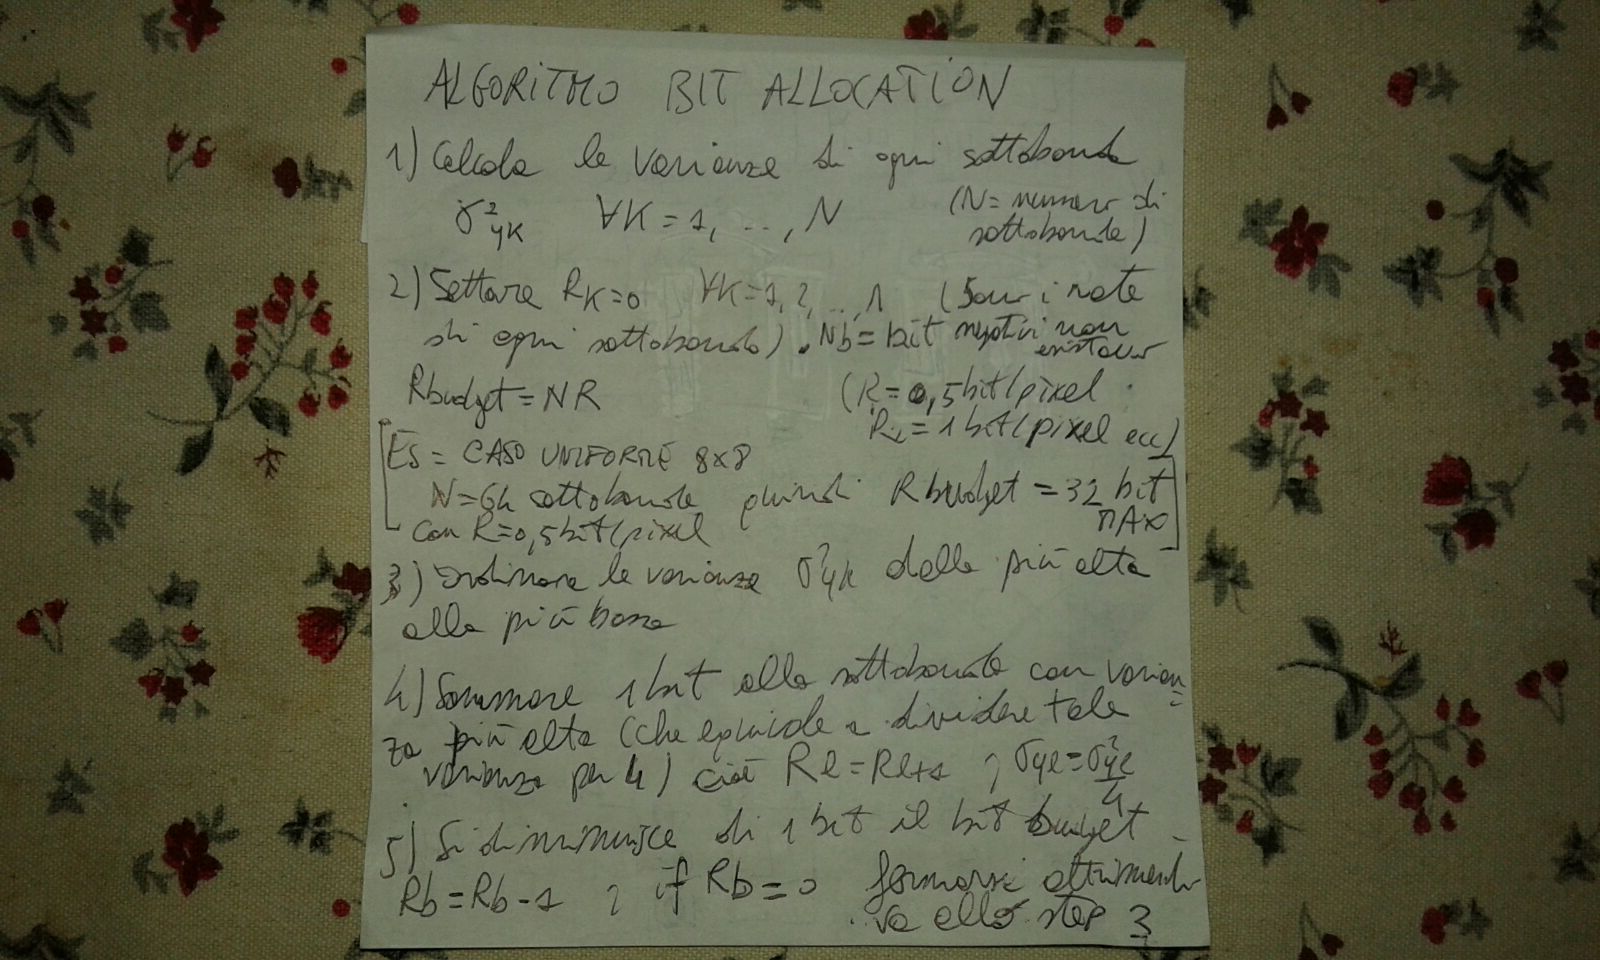 ALGORITMO BIT ALLOCATION
1) Calcola le varianze di ogni sottobanda
σ²yK ∀K=1, ..., N (N= numero di
sottobande)
2) Settare RK=0 ∀K=1,2,...,N (Sono i rate
di ogni sottobanda). Nb= bit negativi non
esistono
Rbudget = NR (R=0,5bit/pixel
R=1bit/pixel ecc)
[Es = CASO UNIFORME 8x8
N=64 sottobande quindi Rbudget = 32 bit
MAX]
con R=0,5bit/pixel
3) Ordinare le varianze σ²yK dalla più alta
alla più bassa
4) Sommare 1 bit alla sottobanda con varian=
za più alta (che equivale a dividere tale
varianza per 4) cioè Rl=Rl+1 ; σyl=σ²yl/4
5) Si diminuisce di 1 bit il bit budget
Rb=Rb-1 ; if Rb=0 fermarsi altrimenti
va allo step 3